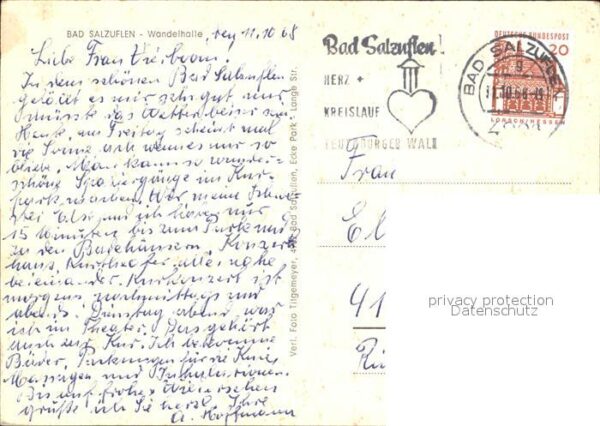 BAD SALZUFLEN - Wandelhalle, den 11.10.68
Liebe Frau
In dem schönen Bad Salzuflen
gefällt es mir sehr gut, nur
müsste das Wetter besser sein.
Heute, am Freitag scheint mal
die Sonne, ach wenn es nur so
bliebe. Man kann so wunder-
schöne Spaziergänge im Kur-
park machen. Wir
bei und ich haben nur
15 Minuten bis zum Park und
zu den Badehäusern, Konzert-
haus, Kurtheater, alles nahe
beieinander. Kurkonzert ist
morgens, nachmittags und
abends. Dienstag abend war
ich im Theater. Das gehört
auch zur Kur. Ich bekomme
Bäder, Packungen für die Knie,
Massagen und Inhalationen.
Bis auf frohes Wiedersehen
grüßt Sie herzl. Ihre
A. Hoffmann
Verl. Foto Tilgemeyer, Bad Salzuflen, Ecke Park- Lange Str.
Bad Salzuflen!
HERZ +
KREISLAUF
TEUTOBURGER WALD
DEUTSCHE BUNDESPOST
20
LORSCH/HESSEN
BAD SALZUFLEN
g
11.10.68
Frau
El
41
privacy protection
Datenschutz